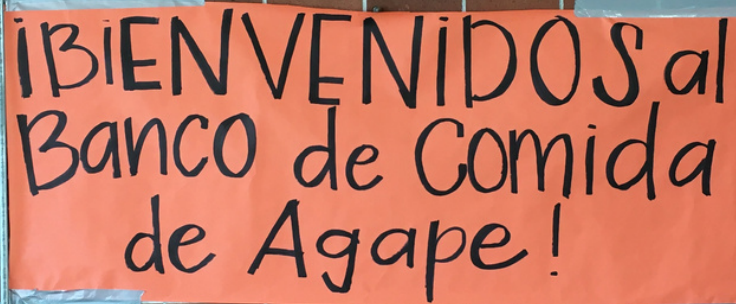 ¡BiENVENiDOS al
Banco de Comida
de Agape!